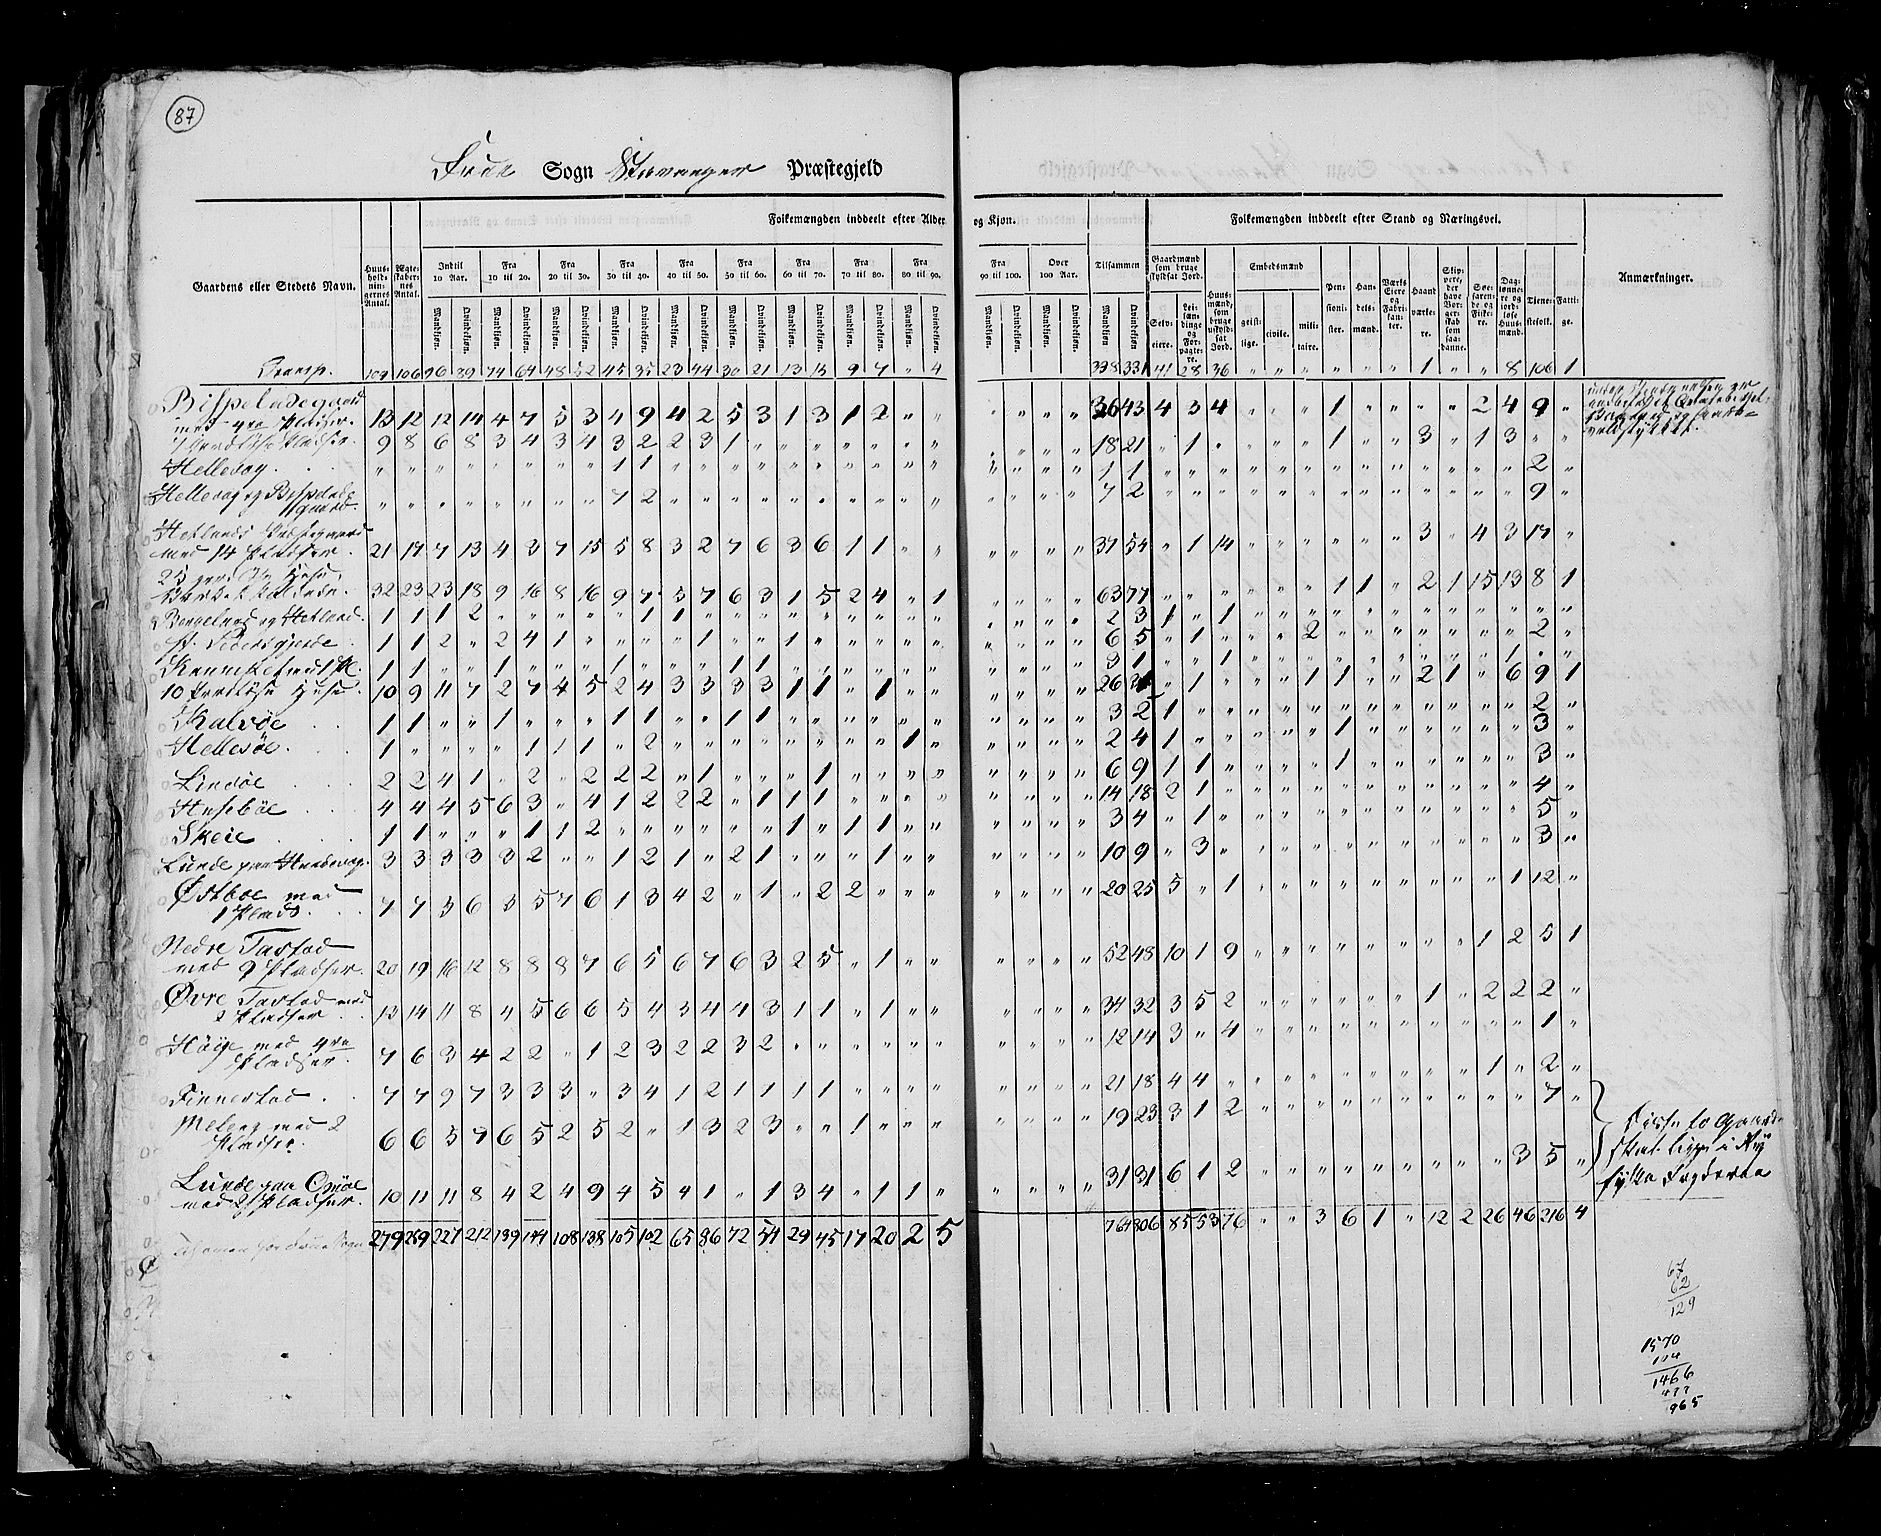 87
Frue Sogn Stavanger Præstegjeld
Folkemængden inddeelt efter Alder og Kjøn.
Folkemængden inddeelt efter Stand og Næringsvei.
Gaardens eller Stedets Navn.
Huus-holdningernes Antal.
Ægteskabernes Antal.
Indtil 10 Aar.
Fra 10 til 20.
Fra 20 til 30.
Fra 30 til 40.
Fra 40 til 50.
Fra 50 til 60.
Fra 60 til 70.
Fra 70 til 80.
Fra 80 til 90.
Fra 90 til 100.
Over 100 Aar.
Tilsammen
Mandkjøn. Qvindekjøn.
Gaardmænd som bruge skyldsat Jord.
Selveiere.
Leilændinge og Forpagtere.
Huusmænd, som bruge uskyldsat Jord.
Embedsmænd
geistlige. civile. militaire.
Pensionister.
Handelsmænd.
Værks Eiere og Fabrikanter.
Haandværkere.
Skippere, der have Borgerskab som saadanne.
Søefarende og Fiskere.
Daglønnere og jordløse Huusmænd.
Tjenestefolk.
Fattige.
Anmærkninger.
Transp. 109 106 96 89 74 64 48 52 45 35 23 44 30 21 13 18 9 7 " 4 338 331 41 28 36 " " " " " " 1 " " 8 106 1
Bispeladegaard
med 4re Pladser. 13 12 12 14 4 7 5 3 4 9 4 2 5 3 1 3 1 2 " " " " " " 36 43 4 3 4 " " " 1 " " " " 2 4 9 "
9 8 6 8 3 4 3 4 3 2 2 3 1 " " " " " " " " " " " 18 21 " 1 " " " " 1 " " 3 " 1 3 " "
Hellevag " " " " " " " " 1 1 " " " " " " " " " " " " " " 1 1 " " " " " " " " " " " " " 2 "
Hellevag og Bispelade
gaard. " " " " " " " " 7 2 " " " " " " " " " " " " " " 7 2 " " " " " " " " " " " " " 9 "
Hetlands Præstegaard
med 14 Pladser 21 17 7 13 4 3 7 15 5 8 3 2 7 6 3 6 1 1 " " " " " " 37 54 " 1 14 " " " " " " 3 " 4 3 17 "
32 23 23 18 9 16 8 16 9 7 3 7 6 3 1 5 2 4 " 1 " " " " 63 77 " " " " " " 1 1 " 2 1 15 13 8 1
Bergeland og Hetland. 1 1 1 2 " " " " " 1 1 " " " " " " " " " " " " " 2 3 1 " 1 " " " " " " " " " " " "
St. Peders gjerde 1 1 2 " 2 4 1 " " " " 1 " " 1 " " " " " " " " " 6 5 " 1 " " " 2 " " " " " " " 2 "
1 1 " " 1 " " " 1 " " " 1 1 " " " " " " " " " " 3 1 " " 1 " " " " " " " " " 1 " "
10 Jordløse Huse. 10 9 11 7 2 7 4 5 2 4 3 3 3 3 1 1 " 1 " " " " " " 26 31 " 1 " " " 1 1 " " 2 1 " 6 9 1
Kalvøe 1 1 " " 1 " " " 1 1 " " 1 1 " " " " " " " " " " 3 2 1 " " " " " " " " " " " " 2 "
Hellesøe. 1 " " " " 1 1 1 " 2 " " " " " " " " 1 " " " " " 2 4 1 " " " " " 1 " " " " " " 3 "
Lindøe 2 2 4 1 " 2 " 2 2 2 " 1 " " " 1 " " " " " " " " 6 9 1 1 " " " " 1 " " " " " " 3 "
Husebøe 4 4 4 5 6 3 " 4 1 2 2 2 " 1 1 1 " " " " " " " " 14 18 2 1 " " " " " " " " " " " 4 "
Skeie 1 1 " " " 1 1 2 " " " " " " 1 " 1 1 " " " " " " 3 4 " 1 " " " " " " " " " " " 5 "
Lunde paa Hundvaag. 3 3 3 3 3 2 " " 1 2 1 " 2 1 " " " 1 " " " " " " 10 9 " 3 " " " " " " " " " " " 3 "
Østbøe med
1 Plads. 7 7 3 6 3 5 7 6 1 3 4 2 " 1 " 2 2 " " " " " " " 20 25 5 " 1 " " " " " " " " " 1 12 "
Nedre Tastad
med 9 Pladser. 20 19 16 12 8 8 8 7 6 5 6 7 6 3 2 5 " 1 " " " " " " 52 48 10 1 9 " " " " " " " " 1 2 5 1
Øvre Tastad med
2 Pladser 13 14 11 8 4 5 6 6 5 4 3 4 4 3 1 1 " 1 " " " " " " 34 32 3 5 2 " " " " " " 1 " 2 2 2 "
Høije med 4re
Pladser. 7 6 3 4 2 2 " 1 2 3 2 2 3 2 " " " " " " " " " " 12 14 3 " 4 " " " " " " " " " " 1 "
Finnestad 7 7 9 7 3 3 3 " 3 4 1 2 1 1 1 1 " " " " " " " " 21 18 4 4 " " " " " " " " " 1 " 2 "
Meling med 2
Pladser. 6 6 5 7 6 5 2 5 2 " 1 3 2 3 " " 1 " " " " " " " 19 23 3 1 2 " " " " " " " " " " 7 "
Lunde paa Omøe
med 2 Pladser. 10 11 11 8 4 2 4 9 4 5 4 1 " 1 3 4 " 1 1 " " " " " 31 31 6 1 2 " " " " " " " " " 3 5 "
Disse to Gaarde
skal ligge i Ry
fylke Fogderie
Tilsammen for Frue Sogn 279 259 227 212 139 144 108 138 105 102 65 86 72 54 29 45 17 20 2 5 764 806 85 53 76 " " 3 6 1 " 12 2 26 46 216 4
67
62
129
1570
104
1466
477
965